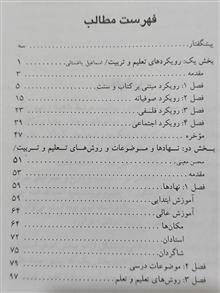 فهرست مطالب
پیشگفتار سه
بخش یک: رویکردهای تعلیم و تربیت/ اسماعیل باغستانی ۱
مقدمه ۳
فصل ۱: رویکرد مبتنی بر کتاب و سنت ۵
فصل ۲: رویکرد صوفیانه ۱۵
فصل ۳: رویکرد فلسفی ۲۳
فصل ۴: رویکرد اجتماعی ۳۹
مؤخره ۴۷
بخش دو: نهادها و موضوعات و روش‌های تعلیم و تربیت/
محسن معینی ۵۱
مقدمه ۵۳
فصل ۱: نهادها ۵۹
آموزش ابتدایی ۵۹
آموزش عالی ۶۴
مکان‌ها ۶۴
استادان ۷۲
شاگردان ۷۵
فصل ۲: موضوعات درسی ۷۹
فصل ۳: روش‌های تعلیم و تعلم ۹۷